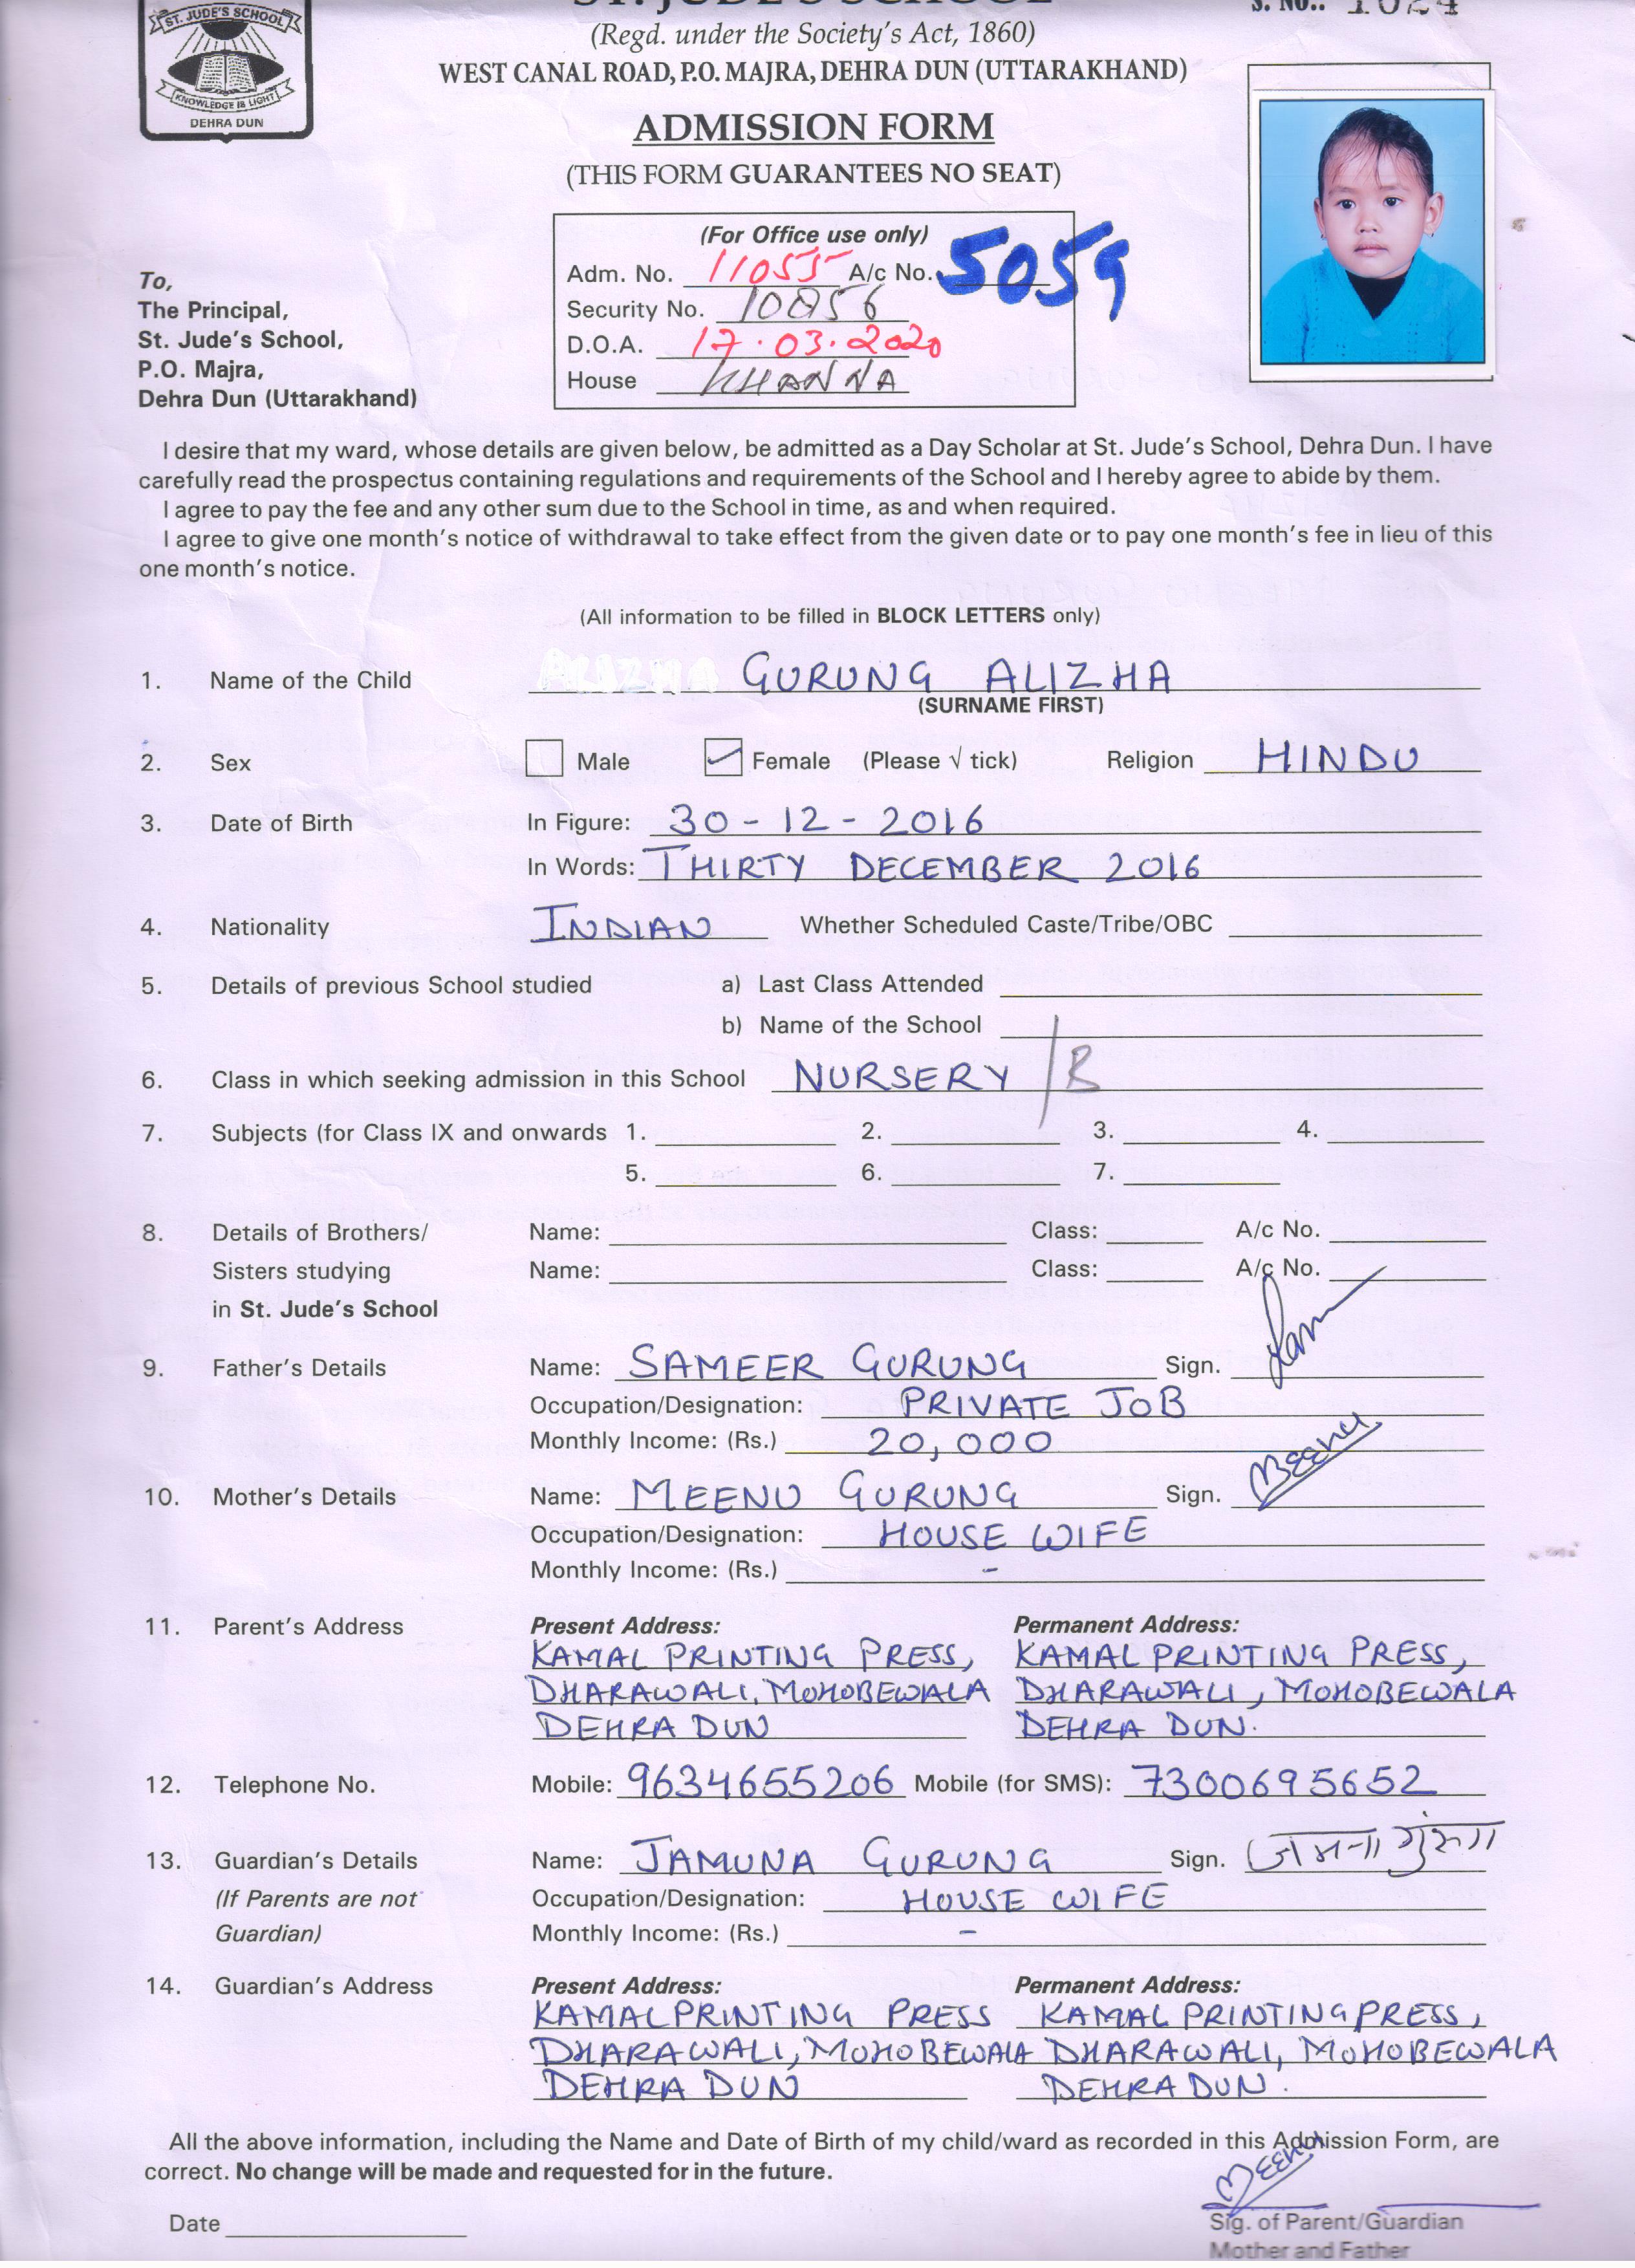 ST. JUDE'S SCHOOL
KNOWLEDGE IS LIGHT
DEHRA DUN
ST. JUDE'S SCHOOL
S. No.: 1024
(Regd. under the Society's Act, 1860)
WEST CANAL ROAD, P.O. MAJRA, DEHRA DUN (UTTARAKHAND)
ADMISSION FORM
(THIS FORM GUARANTEES NO SEAT)
(For Office use only)
Adm. No. 11055 A/c No. 5059
Security No. 10856
D.O.A. 17.03.2020
House KHANNA
To,
The Principal,
St. Jude's School,
P.O. Majra,
Dehra Dun (Uttarakhand)
I desire that my ward, whose details are given below, be admitted as a Day Scholar at St. Jude's School, Dehra Dun. I have
carefully read the prospectus containing regulations and requirements of the School and I hereby agree to abide by them.
I agree to pay the fee and any other sum due to the School in time, as and when required.
I agree to give one month's notice of withdrawal to take effect from the given date or to pay one month's fee in lieu of this
one month's notice.
(All information to be filled in BLOCK LETTERS only)
1. Name of the Child ALIZHA GURUNG ALIZHA
(SURNAME FIRST)
2. Sex Male Female (Please √ tick) Religion HINDU
3. Date of Birth In Figure: 30-12-2016
In Words: THIRTY DECEMBER 2016
4. Nationality INDIAN Whether Scheduled Caste/Tribe/OBC
5. Details of previous School studied a) Last Class Attended
b) Name of the School
6. Class in which seeking admission in this School NURSERY /B
7. Subjects (for Class IX and onwards 1. 2. 3. 4.
5. 6. 7.
8. Details of Brothers/ Name: Class: A/c No.
Sisters studying Name: Class: A/c No.
in St. Jude's School
9. Father's Details Name: SAMEER GURUNG Sign.
Occupation/Designation: PRIVATE JOB
Monthly Income: (Rs.) 20,000
10. Mother's Details Name: MEENU GURUNG Sign. Meenu
Occupation/Designation: HOUSE WIFE
Monthly Income: (Rs.) -
11. Parent's Address Present Address: Permanent Address:
KAMAL PRINTING PRESS, KAMAL PRINTING PRESS,
DHARAWALI, MOHOBEWALA DHARAWALI, MOHOBEWALA
DEHRA DUN DEHRA DUN.
12. Telephone No. Mobile: 9634655206 Mobile (for SMS): 7300695652
13. Guardian's Details Name: JAMUNA GURUNG Sign. जमना गुरुंग
(If Parents are not Occupation/Designation: HOUSE WIFE
Guardian) Monthly Income: (Rs.) -
14. Guardian's Address Present Address: Permanent Address:
KAMAL PRINTING PRESS KAMAL PRINTING PRESS,
DHARAWALI, MOHOBEWALA DHARAWALI, MOHOBEWALA
DEHRA DUN DEHRA DUN.
All the above information, including the Name and Date of Birth of my child/ward as recorded in this Admission Form, are
correct. No change will be made and requested for in the future.
Meenu
Date Sig. of Parent/Guardian
Mother and Father